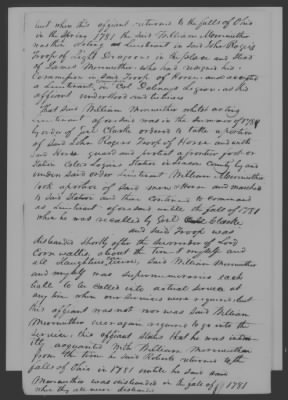 but when this affiant returned to the falls of Ohio
in the Spring 1781 the said William Meriwether
was then doting as Lieutenant in said John Rogers
Troop of Light Dragoons in the place and stead
of James Meriwether who had resigned his
Commission in said Troop of Horse and accepted
a Lieutenant in Col Dabneys Legion as this
affiant understood and believes
That said William Meriwether whilst acting
Lieutenant aforesaid was in the Summer of 1781
by order of Genl Clarke ordered to take a portion
of said John Rogers Troop of Horse and with
said Horse guard and protect a frontier post or
Station Called Logans Station in Lincoln County by and
under said order Lieutenant William Meriwether
took a portion of said men & Horse and marched
to said Station and there continued to command
as Lieutenant aforesaid until the fall of 1781
when he was recalled by Genl Clarke
and said Troop was
disbanded shortly after the surrender of Lord
Corn wallis, about this time myself and
said William Meriwether
and myself was supernumerarous each
liable to be called into actual service at
any time when our services were required but
this affiant was not nor was said William
Meriwether ever again required to go into the
service, this affiant States that he was
acquainted with William Meriwether
from the time he said Roberts returned to the
falls of Ohio in 1781 until he said
Meriwether was disbanded in the fall of 1781
when they all were disbanded